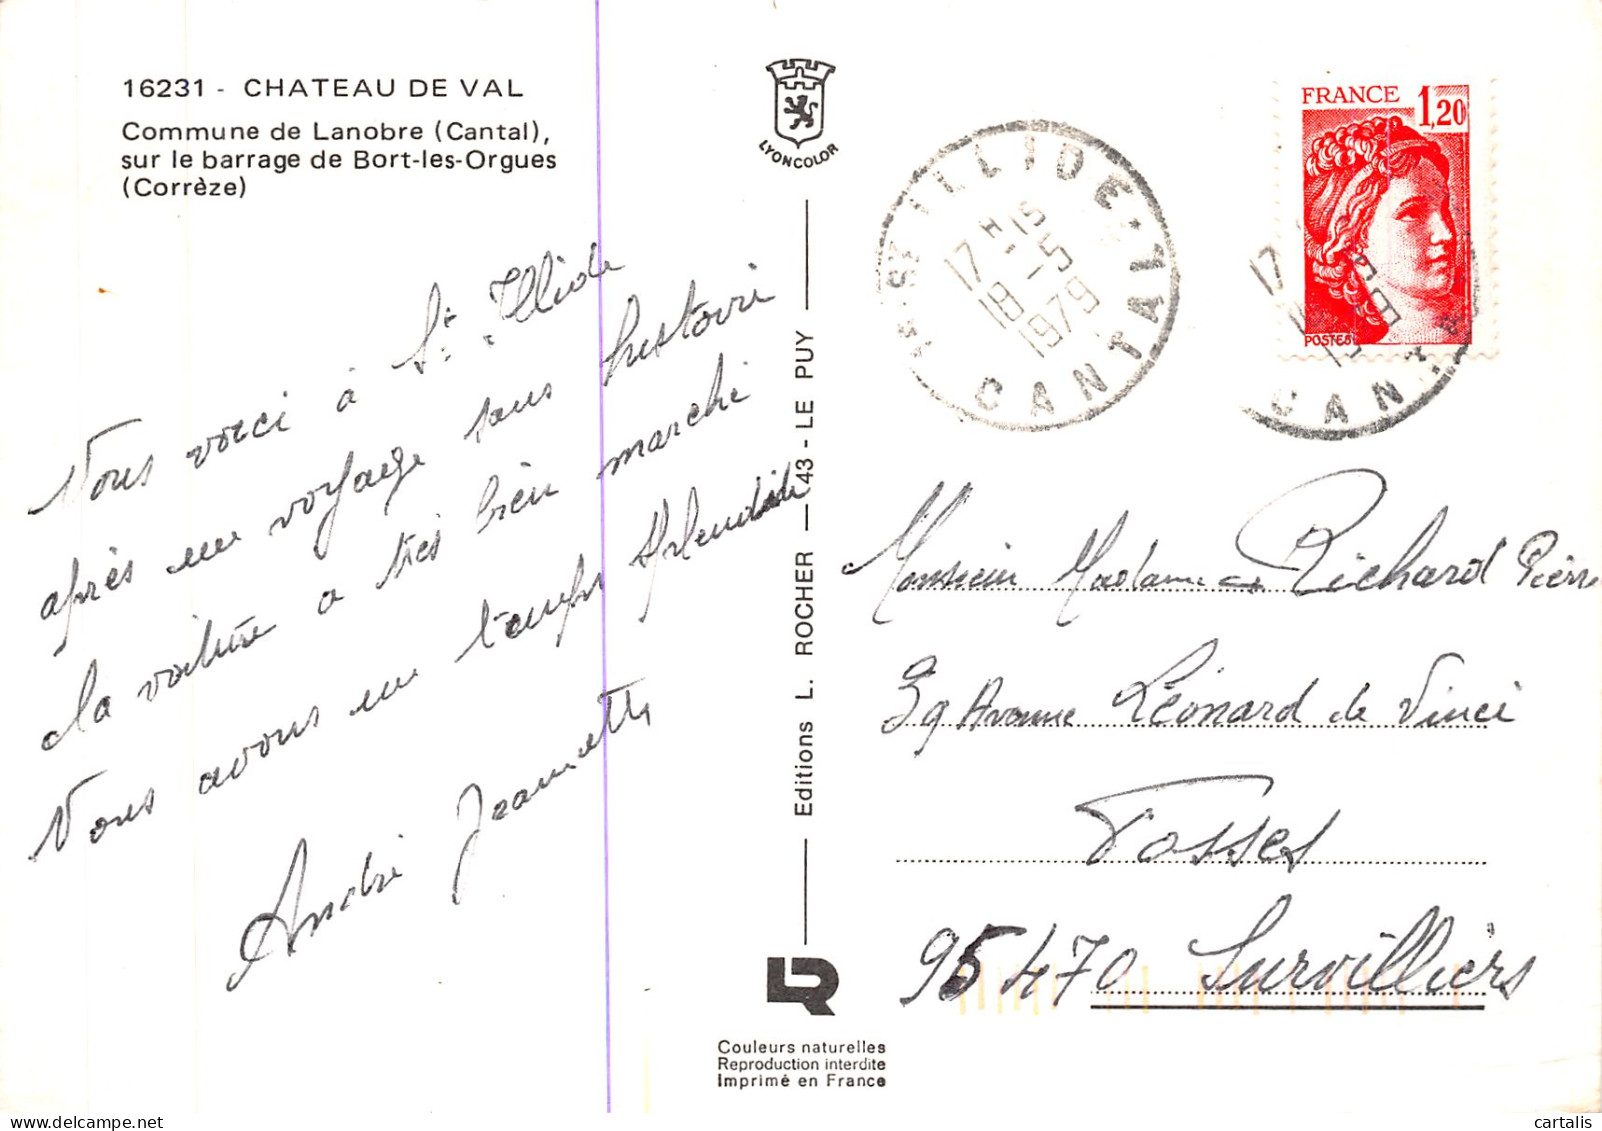 16231 - CHATEAU DE VAL
Commune de Lanobre (Cantal),
sur le barrage de Bort-les-Orgues
(Corrèze)
Vous voici à St Illide
après un voyage sans histoire
la voiture a très bien marché
Nous avons un temps splendide
André Jeannette
LYONCOLOR
Editions L. ROCHER — 43 - LE PUY
LR
Couleurs naturelles
Reproduction interdite
Imprimé en France
15 ST ILLIDE * CANTAL
17 H 15
18 - 5
1979
FRANCE 1,20
POSTES
17
CAN
Monsieur Madame Richard Pierre
39 Avenue Léonard de Vinci
Fosses
95470 Survilliers
cartalis delcampe.net